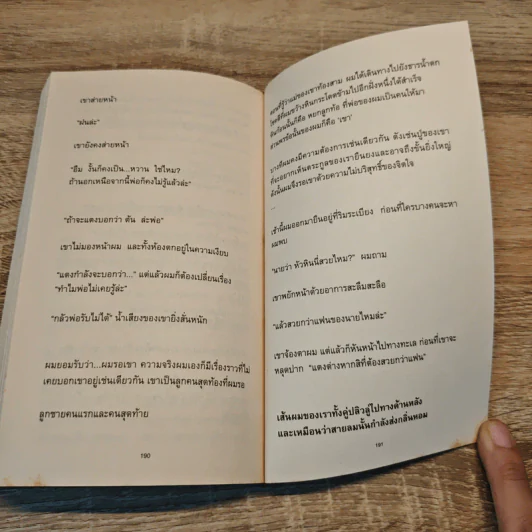 เขาส่ายหน้า
"ฝนล่ะ"
เขายังคงส่ายหน้า
"อืม งั้นก็คงเป็น...หวาน ใช่ไหม?
ถ้านอกเหนือจากนี้พ่อก็คงไม่รู้แล้วล่ะ"
"ถ้าจะแดงบอกว่า ตัน ล่ะพ่อ"
เขาไม่มองหน้าผม และทั้งห้องตกอยู่ในความเงียบ
"แดงกำลังจะบอกว่า..." แต่แล้วผมก็ต้องเปลี่ยนเรื่อง
"ทำไมพ่อไม่เคยรู้ล่ะ"
"กลัวพ่อรับไม่ได้" น้ำเสียงของเขายิ่งสั่นหนัก
ผมยอมรับว่า...ผมรอเขา ความจริงผมเองก็มีเรื่องราวที่ไม่
เคยบอกเขาอยู่เช่นเดียวกัน เขาเป็นลูกคนสุดท้องที่ผมรอ
ลูกชายคนแรกและคนสุดท้าย
190
ตอนที่รู้ว่าแม่ของเขาท้องสาม ผมได้เดินทางไปยังธารน้ำตก
โชคดีที่ผมขว้างหินกระโดดข้ามไปอีกฝั่งหนึ่งได้สำเร็จ
หินก้อนนั้นก็คือ หยกลูกท้อ ที่พ่อของผมเป็นคนให้มา
บางทีผมคงมีความต้องการเช่นเดียวกัน ดังเช่นปู่ของเขา
ที่จะอยากเห็นตระกูลของเรายืนยงและอาจถึงขั้นยิ่งใหญ่
ดังนั้นผมจึงรอเขาด้วยความไม่บริสุทธิ์ของจิตใจ
...
เช้านี้ผมออกมายืนอยู่ที่ริมระเบียง ก่อนที่ใครบางคนจะหา
ผมพบ
"นายว่า หัวหินนี่สวยไหม?" ผมถาม
เขาพยักหน้าด้วยอาการสะลึมสะลือ
"แล้วสวยกว่าแฟนของนายไหมล่ะ"
เขาจ้องตาผม แต่แล้วก็หันหน้าไปทางทะเล ก่อนที่เขาจะ
หลุดปาก "แดงต่างหากสิที่ต้องสวยกว่าแฟน"
เส้นผมของเราทั้งคู่ปลิวลู่ไปทางด้านหลัง
และเหมือนว่าสายลมนั้นกำลังส่งกลิ่นหอม
191